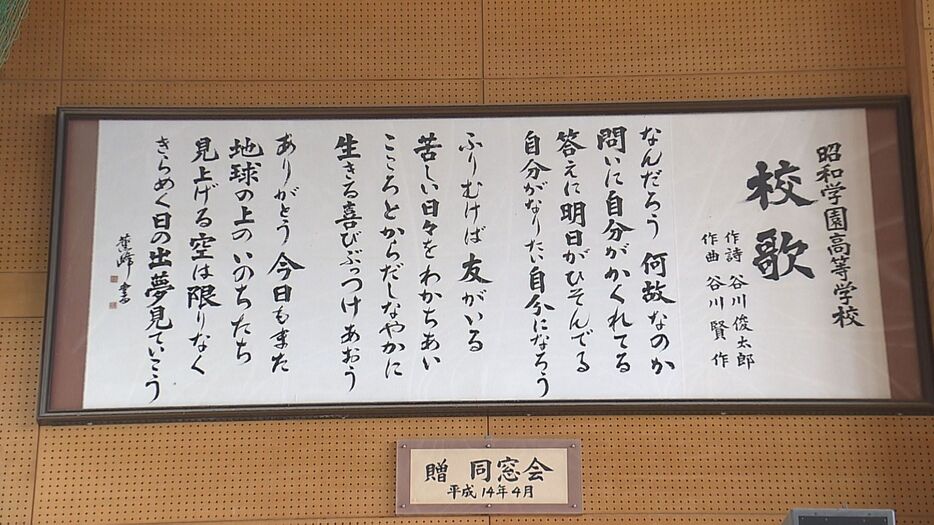 昭和学園高等学校
校歌
作詩 谷川 俊太郎
作曲 谷川 賢作
なんだろう 何故なのか
問いに自分がかくれてる
答えに明日がひそんでる
自分がなりたい自分になろう
ふりむけば 友がいる
苦しい日々をわかちあい
こころとからだしなやかに
生きる喜びぶっつけあおう
ありがとう 今日もまた
地球の上のいのちたち
見上げる空は限りなく
きらめく日の出夢見ていこう
贈 同窓会
平成14年4月